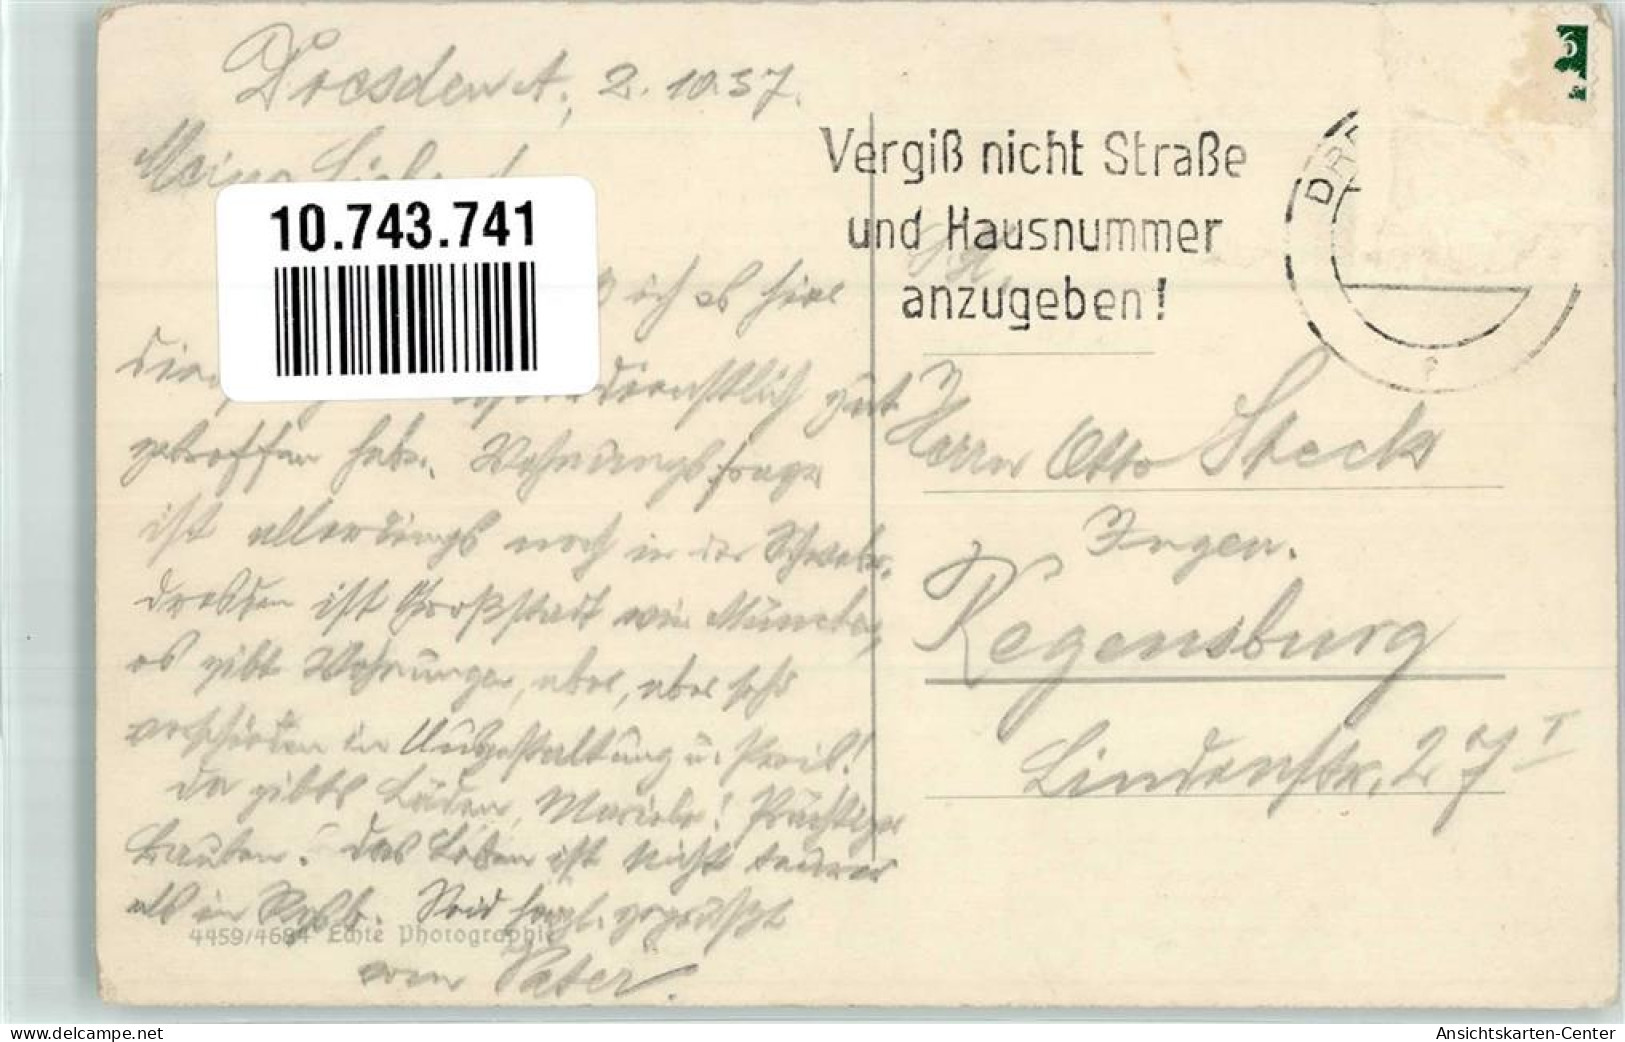 Dresden A., 2.10.37.
Meine Lieben!
10.743.741
ich es hier
dienstlich gut
getroffen habe. Wohnungsfrage
ist allerdings noch in der Schwebe.
Dresden ist Großstadt wie München,
es gibt Wohnungen, aber, aber sehr
verschieden in Ausgestaltung u. Preis!
Da gibts Läden, Mariele! Prächtige
Bauten. Das Leben ist nicht teurer
als in Rgsb. Seid herzl. gegrüßt
vom Vater.
4459/4684 Echte Photographie
Vergiß nicht Straße
und Hausnummer
anzugeben!
6
Herrn Otto Steck
Ingen.
Regensburg
Lindenstr. 27 I
Ansichtskarten-Center
www.delcampe.net